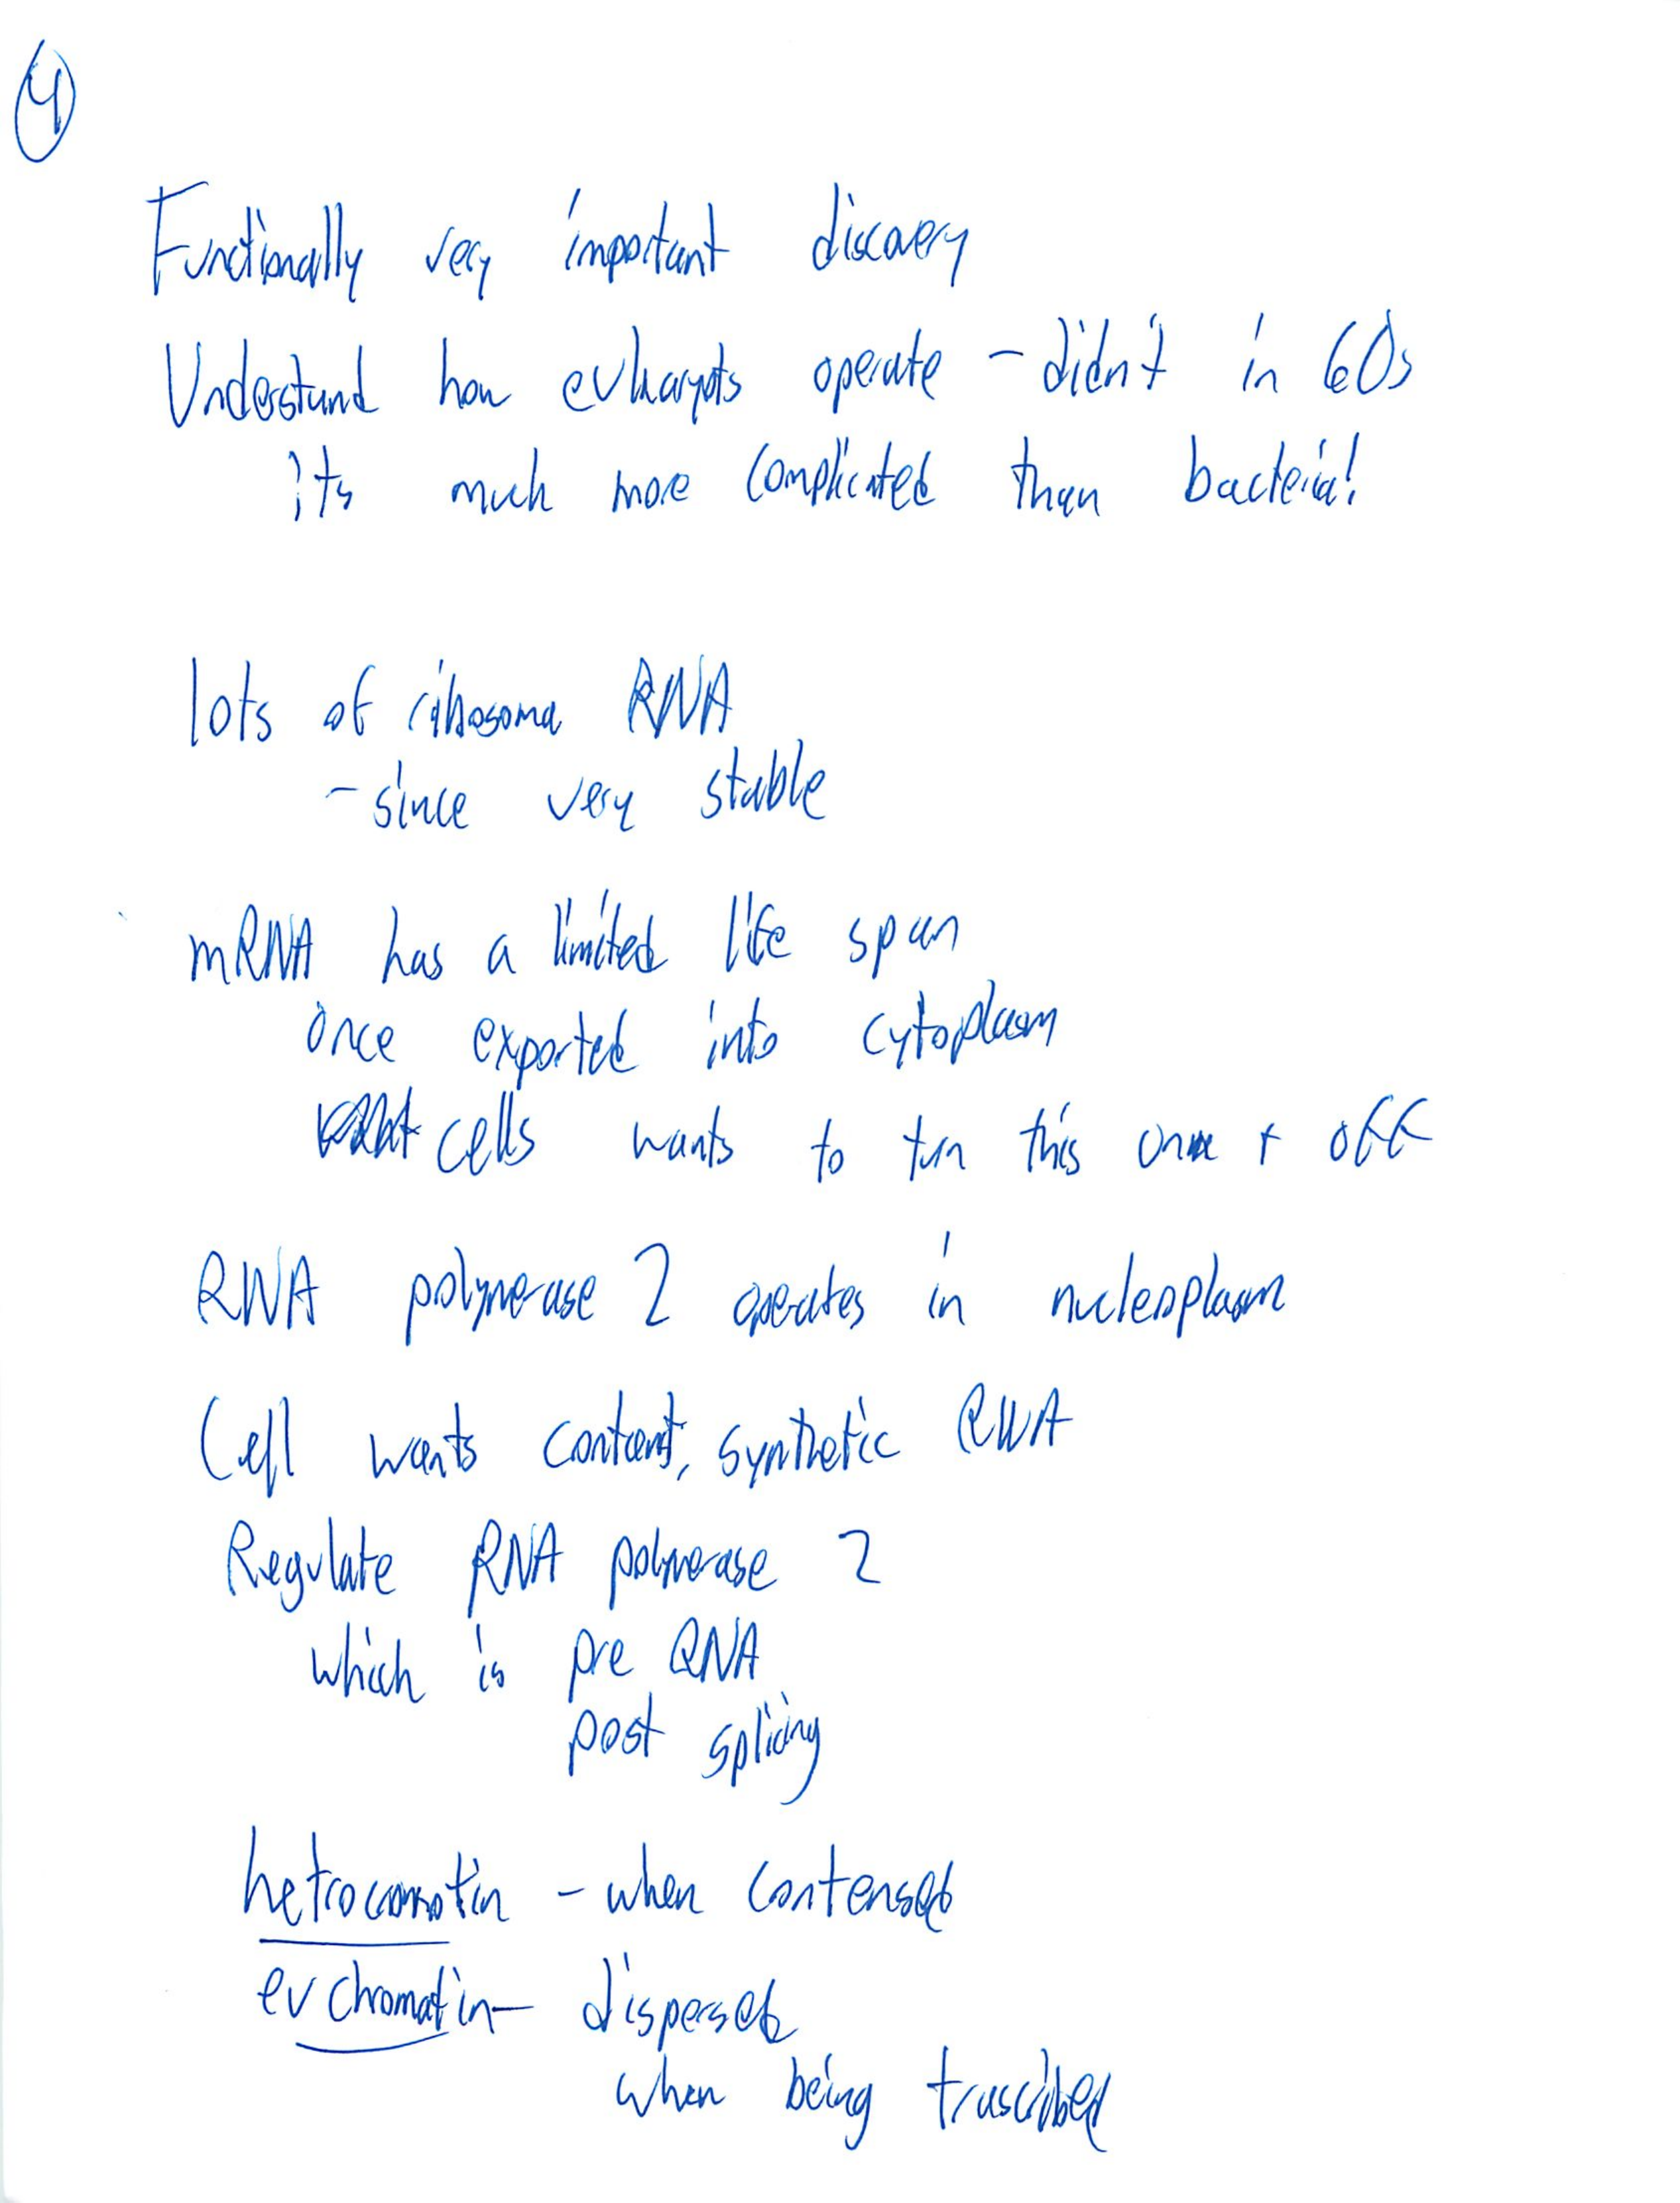 4
Functionally very important discovery
Understand how eukaryots operate - didn't in 60s
its much more complicated than bacteria!
lots of ribosoma RNA
- since very stable
mRNA has a limited life span
once exported into cytoplasm
cells wants to turn this on + off
RNA polymerase 2 operates in nucleoplasm
Cell wants synthetic RNA
Regulate RNA polymerase 2
which is pre RNA
post splicing
- when contensed
euchromatin - dispersed
when being trascribed